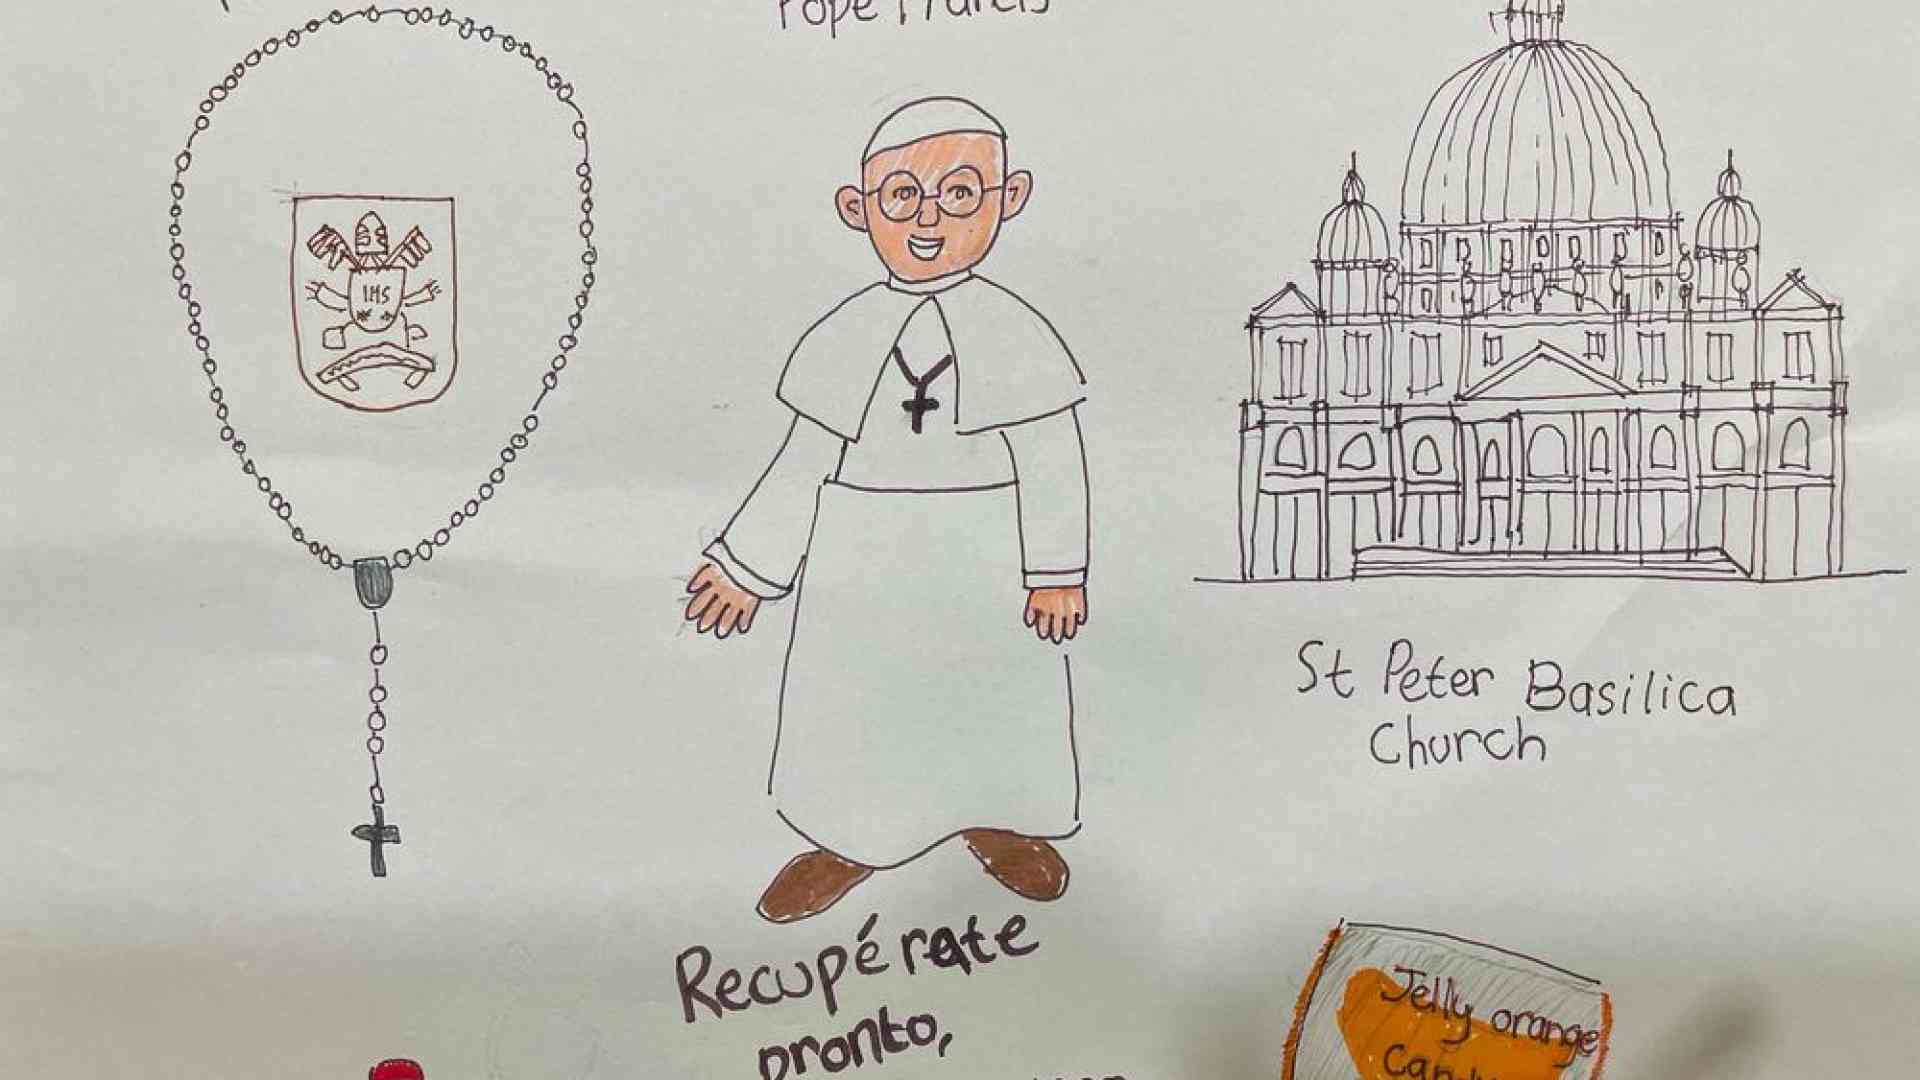 Pope Francis
IHS
St Peter Basilica
Church
Recupérate
pronto,
Jelly orange